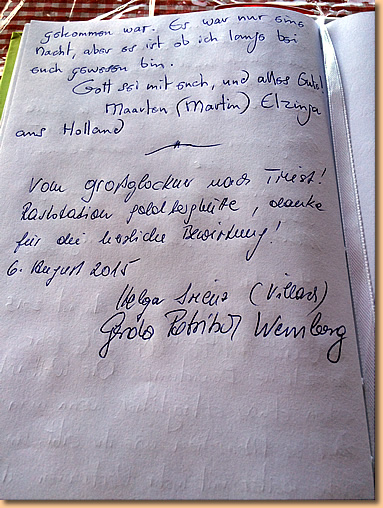 gekommen war. Es war nur eine
Nacht, aber es ist ob ich lange bei
euch gewesen bin.
Gott sei mit euch, und alles Gute!
Maarten (Martin) Elzinga
aus Holland
Vom Großglockner nach Triest!
Raststation Goldberghütte, danke
für die herzliche Bewirtung!
6. August 2015
Helga (Villach)
Gerda Weinberg